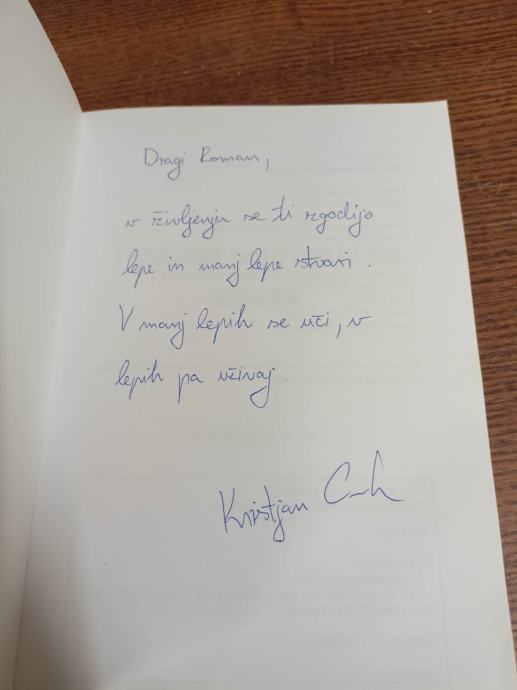 Dragi Roman,
v življenju se ti zgodijo
lepe in manj lepe stvari.
V manj lepih se uči, v
lepih pa uživaj.
Kristjan